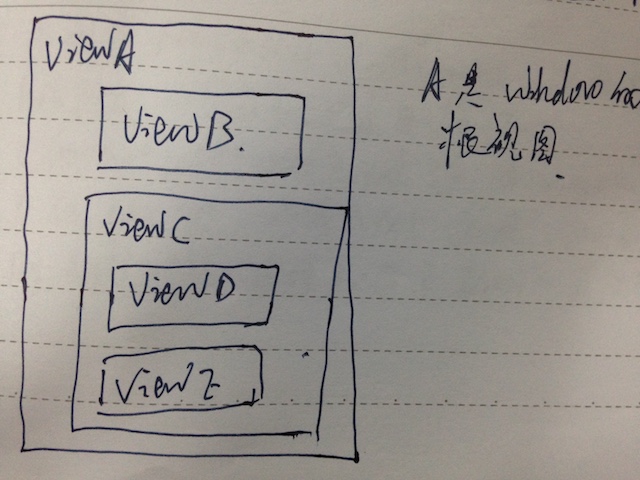 ViewA
ViewB.
ViewC
ViewD
ViewE
A是 window
根视图.